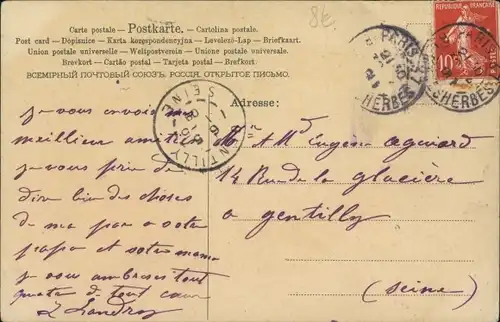 Carte postale - Postkarte. - Cartolina postale.
Post card - Dopisnice - Karta korespondencyjna - Levelező-Lap - Briefkaart.
Union postale universelle - Weltpostverein - Unione postale universale.
Brevkort - Cartão postal - Tarjeta postal - Brefkort.
ВСЕМІРНЫЙ ПОЧТОВЫЙ СОЮЗЪ. РОССІЯ. ОТКРЫТОЕ ПИСЬМО.
REPUBLIQUE FRANÇAISE
10c
PARIS
GENTILLY
SEINE
Adresse:
je vous envoie mes
meilleur amitiés
je vous prie de
dire bien des choses
de ma par a votre
papa et votre maman
je vous embrasse tous
quatre de tout cœur
L Landroy
Mr et Md Eugène Aguiard
14 Rue de la glacière
a gentilly
(Seine)